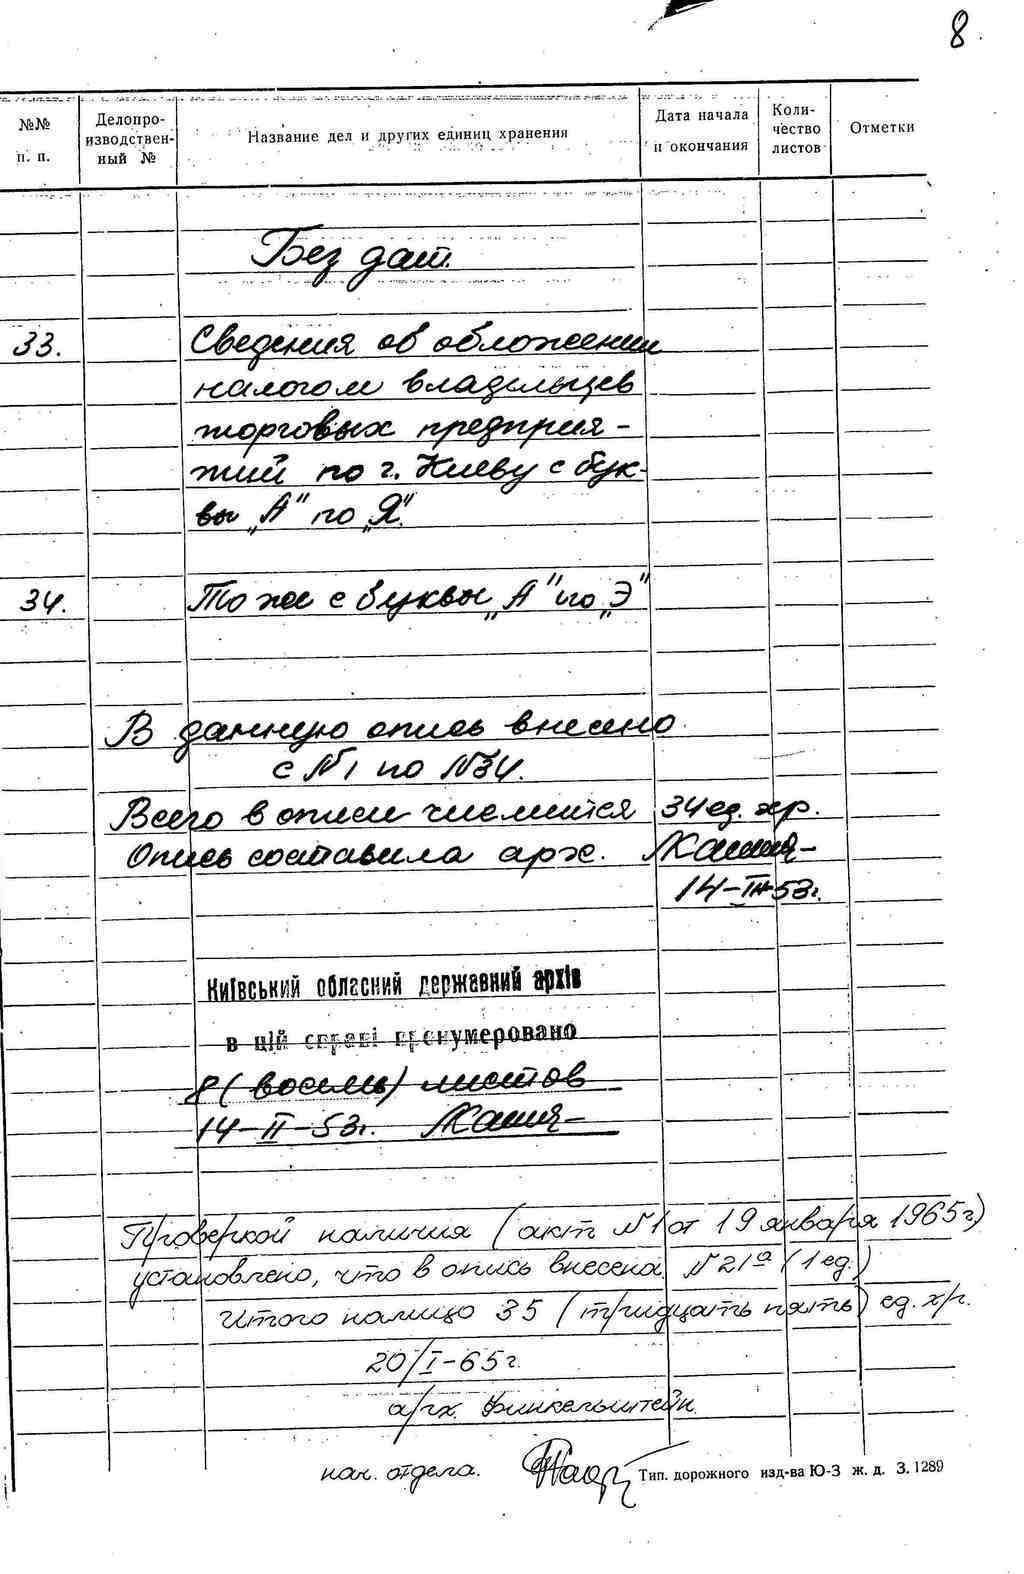 8.
№№ п. п.
Делопро-изводствен-ный №
Название дел и других единиц хранения
Дата начала и окончания
Коли-чество листов
Отметки
Без дат.
33.
Сведения об обложении
налогом владельцев
торговых предприя-
тий по г. Киеву с бук-
вы „А" по „Я".
34.
То же с буквы „А" по „Э"
В данную опись внесено
с №1 по №34.
Всего в описи числится 34 ед. хр.
Опись составила арх.
14-II-53г.
Київський обласний державний архів
в цій справі пронумеровано
8 (восемь) листов
14-II-53г.
Проверкой наличия (акт №1 от 19 января 1965г.)
установлено, что в опись внесена №21а (1 ед.)
Итого налицо 35 (тридцать пять) ед. хр.
20/I-65г.
арх. Финкельштейн
нач. отдела.
Тип. дорожного изд-ва Ю-З ж. д. З. 1289